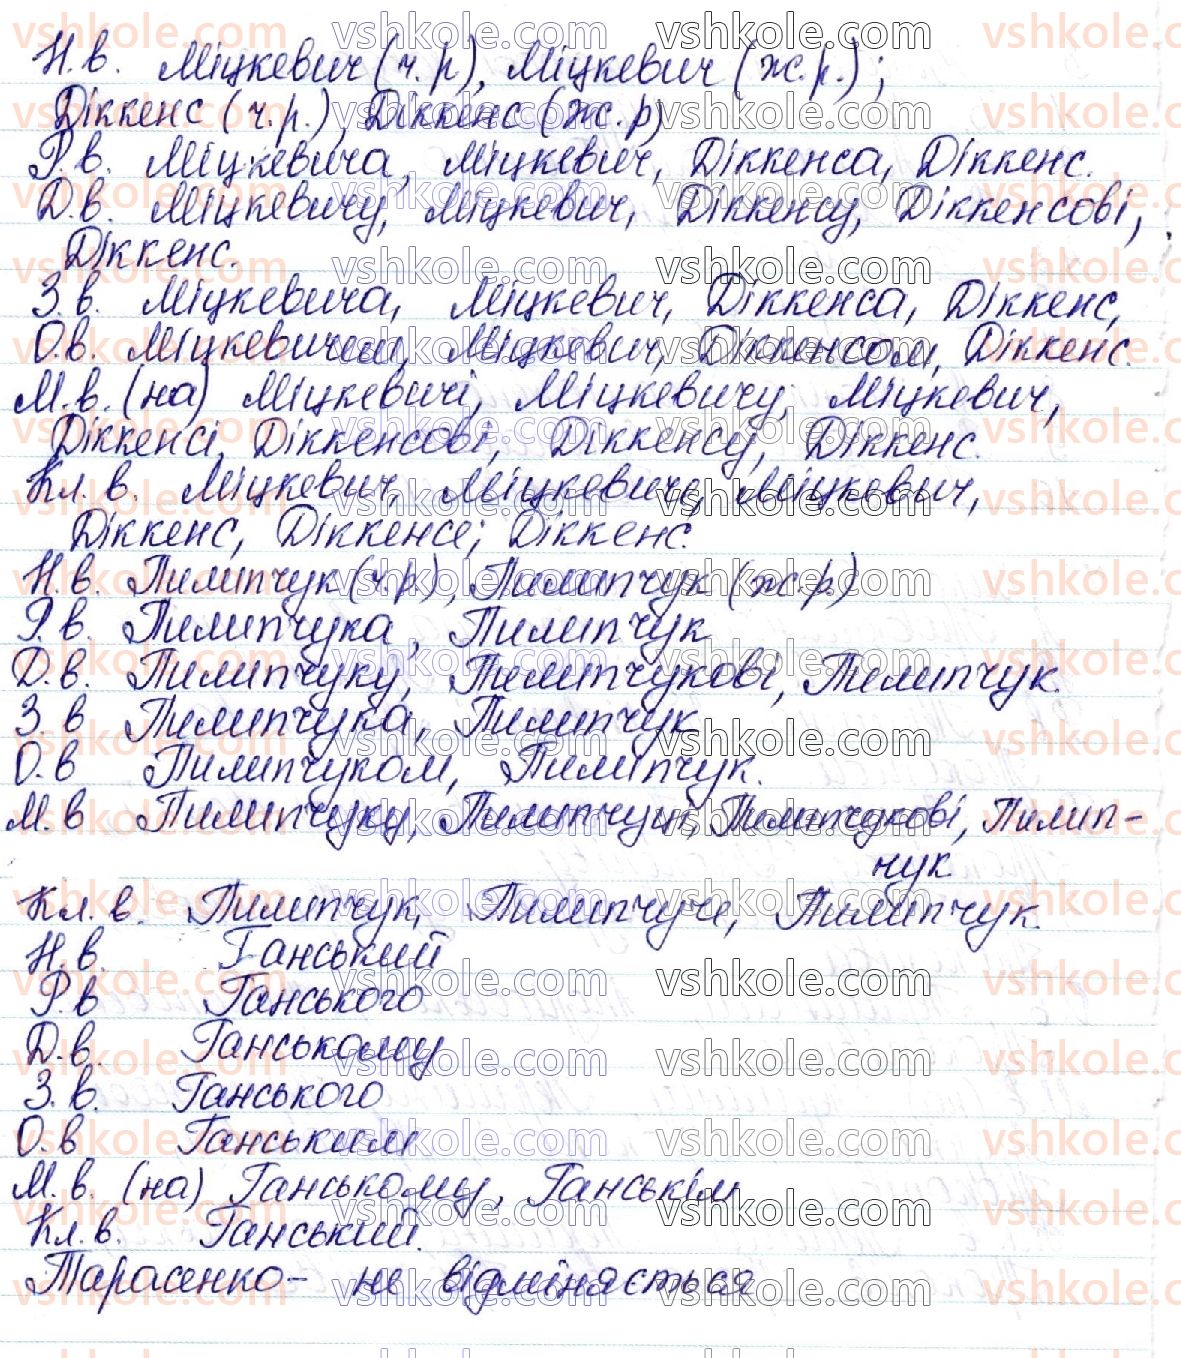 Н.в. Міцкевич (ч.р), Міцкевич (ж.р.);
Діккенс (ч.р.), Діккенс (ж.р)
Р.в. Міцкевича, Міцкевич, Діккенса, Діккенс.
Д.в. Міцкевичу, Міцкевич, Діккенсу, Діккенсові,
Діккенс.
З.в. Міцкевича, Міцкевич, Діккенса, Діккенс,
О.в. Міцкевичем, Міцкевич, Діккенсом, Діккенс.
М.в. (на) Міцкевичі, Міцкевичу, Міцкевич,
Діккенсі, Діккенсові, Діккенсу, Діккенс.
Кл. в. Міцкевич, Міцкевиче, Міцкевич,
Діккенс, Діккенсе; Діккенс.
Н.в. Пилипчук (ч.р), Пилипчук (ж.р.)
Р.в. Пилипчука, Пилипчук
Д.в. Пилипчуку, Пилипчукові, Пилипчук.
З.в Пилипчука, Пилипчук
О.в Пилипчуком, Пилипчук.
М.в Пилипчуку, Пилипчуці, Пилипчукові, Пилип-
чук
Кл.в. Пилипчук, Пилипчуче, Пилипчук.
Н.в. Ганський
Р.в Ганського
Д.в. Ганському
З.в. Ганського
О.в Ганським
М.в. (на) Ганському, Ганськім
Кл.в. Ганський.
Тарасенко - не відміняється